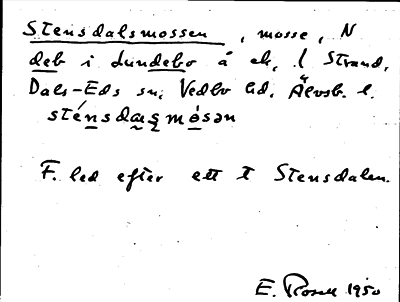 Stensdalsmossen, mosse, N
deb i Lundebo å ek, l Strand,
Dals-Eds sn, Vedbo hd, Älvsb. l.
sténsdæs̨mòsən
F. led efter ett † Stensdalen.
E. Rosell 1950